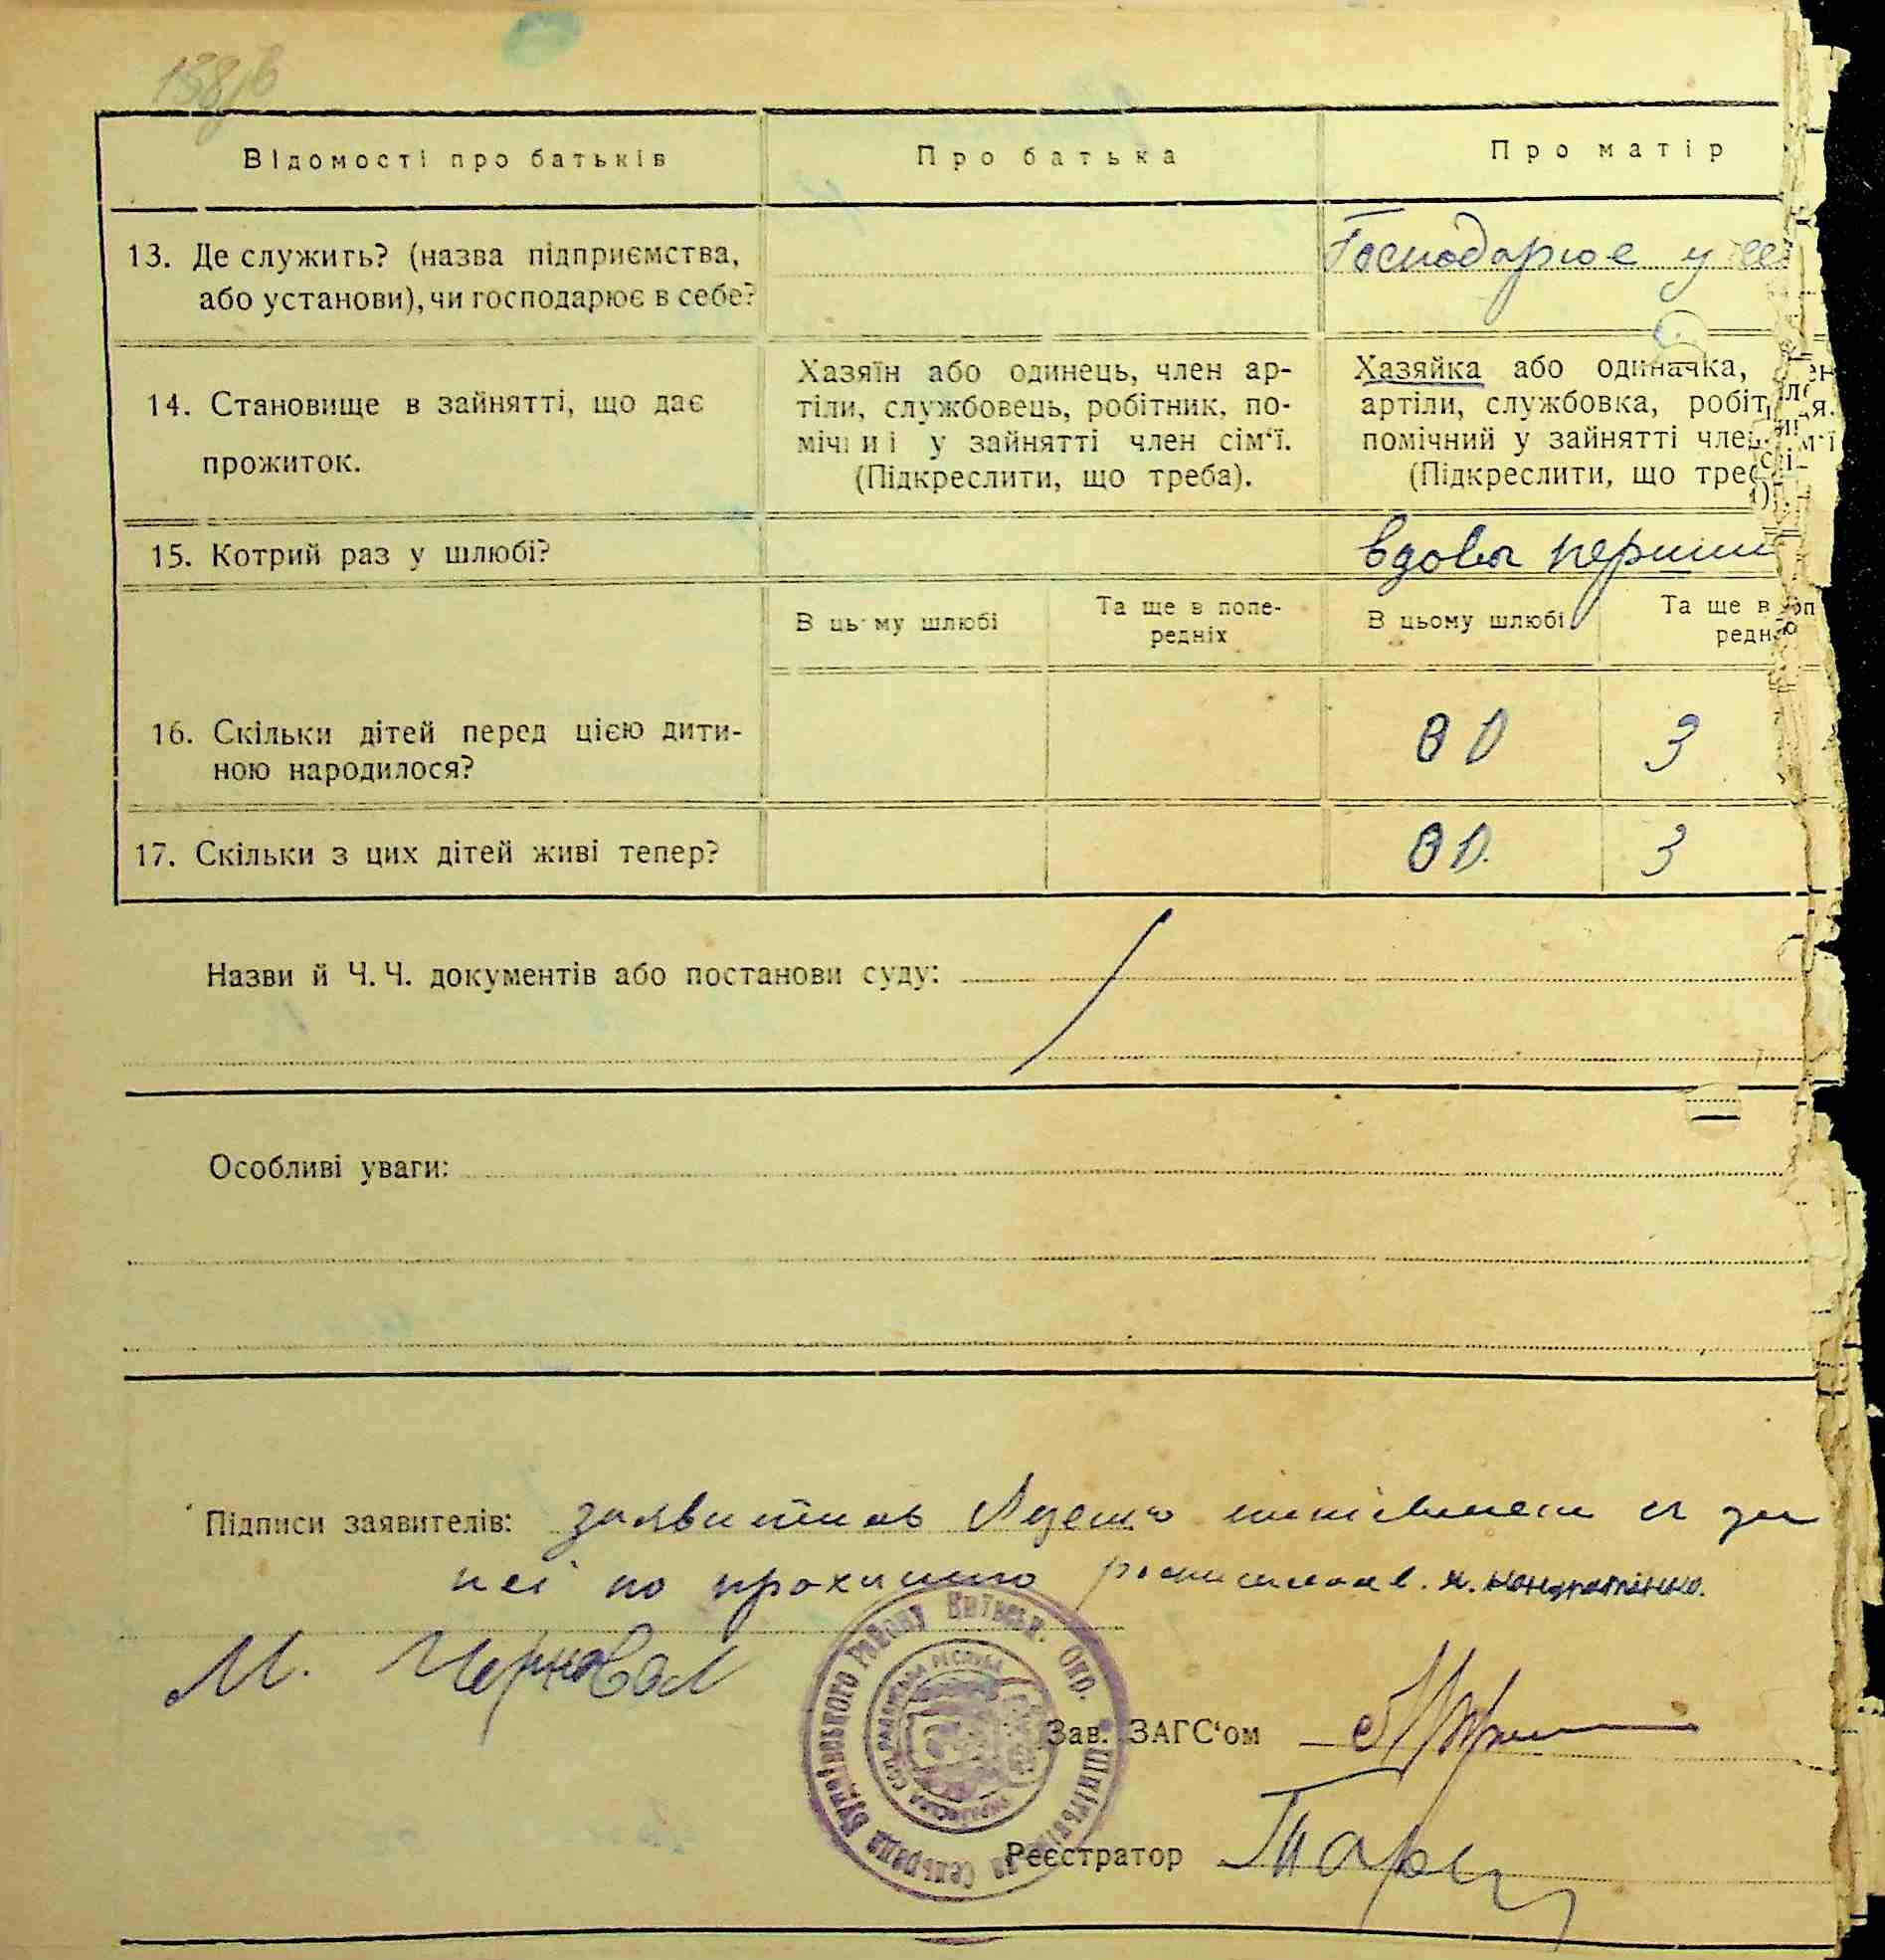 Відомості про батьків
Про батька
Про матір
13. Де служить? (назва підприємства,
або установи), чи господарює в себе?
Господарює у се
14. Становище в зайнятті, що дає
прожиток.
Хазяїн або одинець, член ар-
тіли, службовець, робітник, по-
міч и і у зайнятті член сім‘ї.
(Підкреслити, що треба).
Хазяйка або одиначка,
артіли, службовка, робіт
помічний у зайнятті член
(Підкреслити, що треб
15. Котрий раз у шлюбі?
вдова перший
В цьому шлюбі
Та ще в попе-
редніх
В цьому шлюбі
Та ще в поп
редн
16. Скільки дітей перед цією дити-
ною народилося?
3
17. Скільки з цих дітей живі тепер?
3
Назви й Ч. Ч. документів або постанови суду:
Особливі уваги:
Підписи заявителів: а за
неї по прохашию н. Кондратінко.
М. Чорновол
Зав. ЗАГС‘ом
Реєстратор